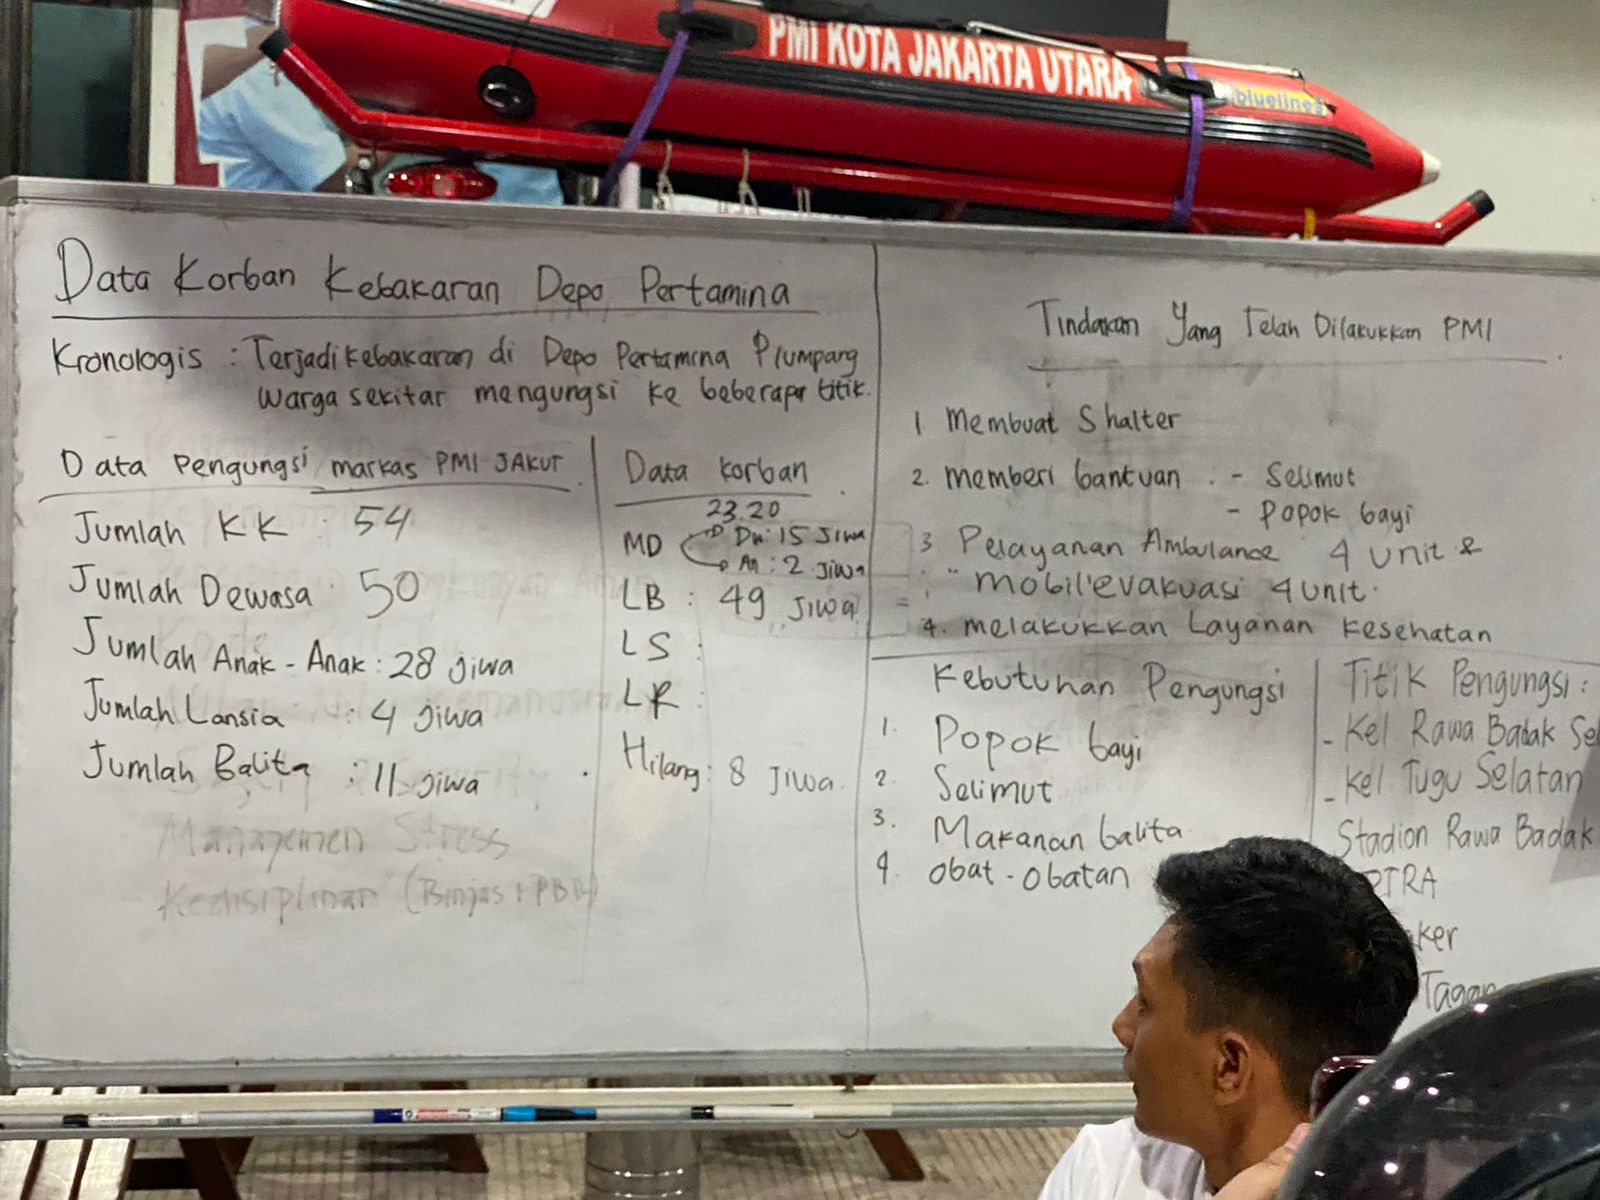 PMI KOTA JAKARTA UTARA
bluelines
Data Korban Kebakaran Depo Pertamina
Kronologis : Terjadi kebakaran di Depo Pertamina Plumpang
warga sekitar mengungsi ke beberapa titik.
Data Pengungsi markas PMI JAKUT
Jumlah KK : 54
Jumlah Dewasa : 50
Jumlah Anak - Anak : 28 jiwa
Jumlah Lansia : 4 jiwa
Jumlah Balita : 11 jiwa
Manajemen Stress
Kedisiplinan (Binjas + PBB)
Data korban
23.20
MD Dw : 15 Jiwa
An : 2 Jiwa
LB : 49 Jiwa
LS :
LR :
Hilang : 8 Jiwa.
Tindakan Yang Telah Dilakukkan PMI
1 Membuat Shalter
2. memberi bantuan : - Selimut
- Popok bayi
3. Pelayanan Ambulance 4 unit &
" mobil evakuasi 4 unit.
4. melakukkan Layanan Kesehatan
Kebutuhan Pengungsi
1. Popok bayi
2. Selimut
3. Makanan balita
4. Obat - Obatan
Titik Pengungsi :
- Kel Rawa Badak Sel
- Kel Tugu Selatan
Stadion Rawa Badak
PTRA
ker